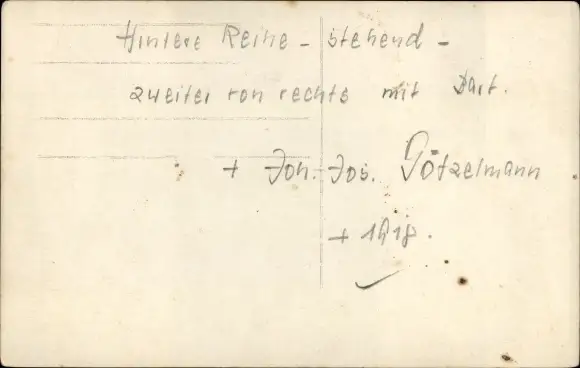 Hintere Reihe - stehend -
zweiter von rechts mit Bart.
+ Joh. Jos. Götzelmann
+ 1918.